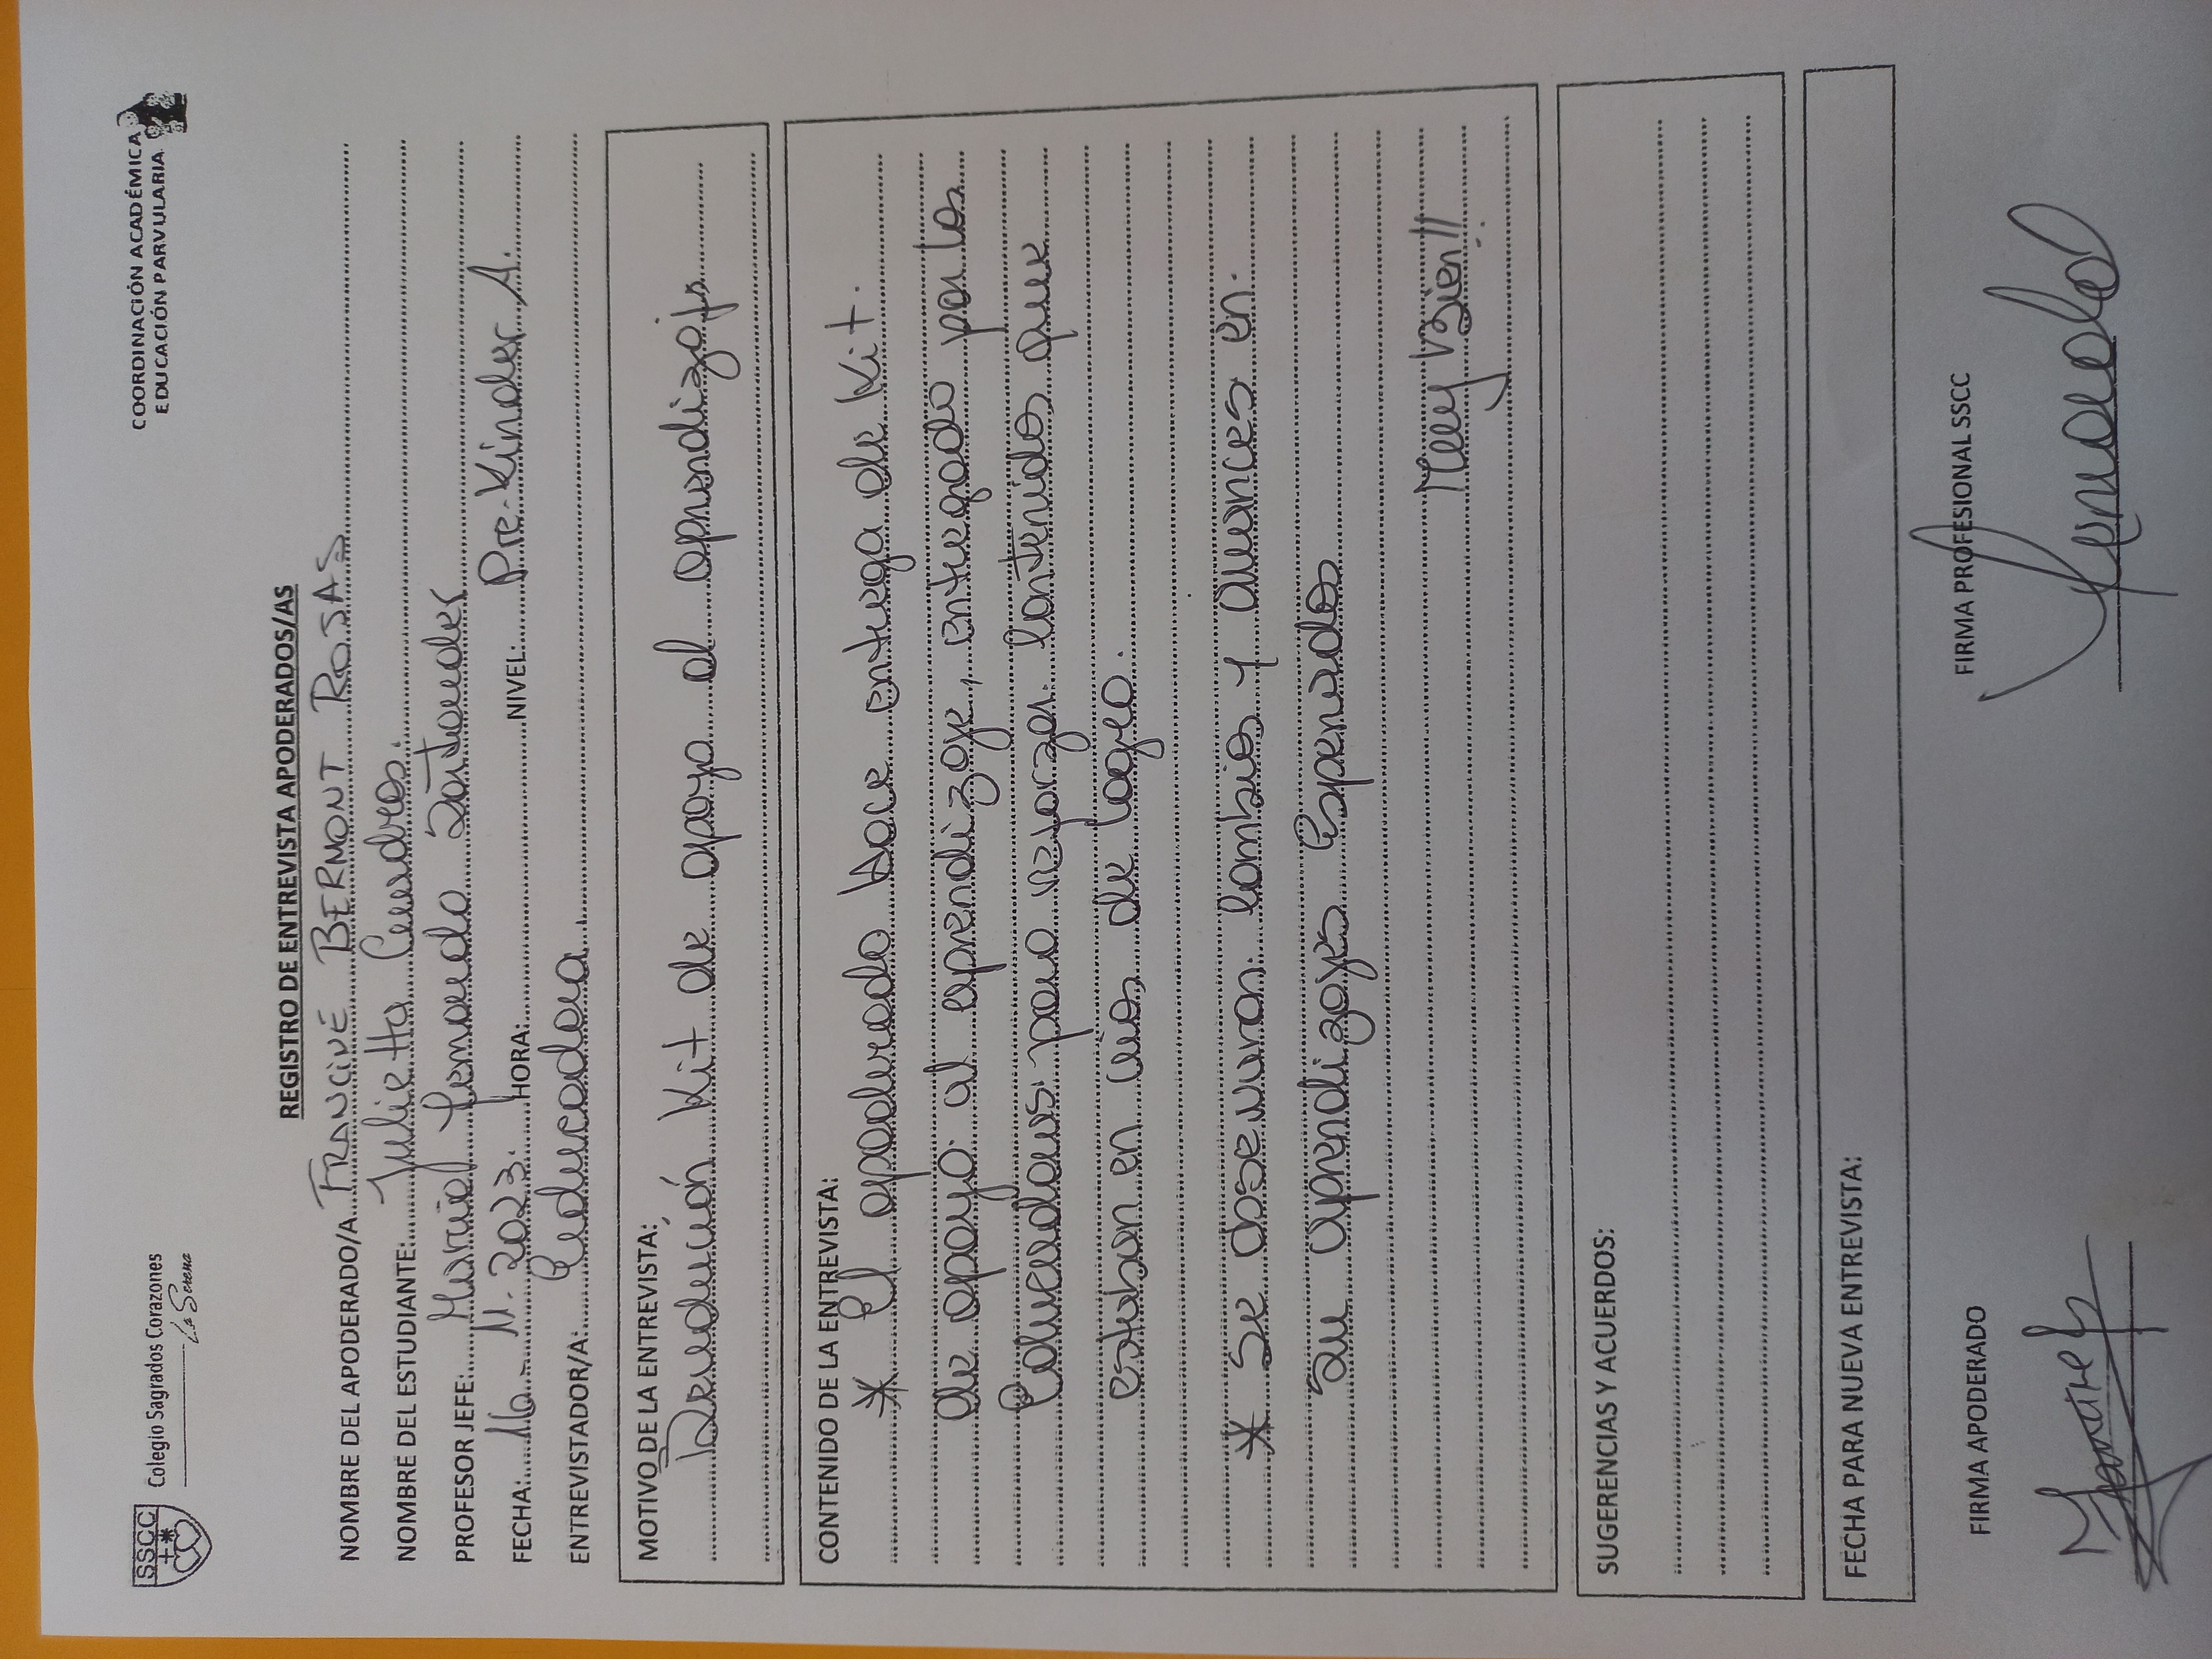 SSCC
Colegio Sagrados Corazones
La Serena
COORDINACIÓN ACADÉMICA
EDUCACIÓN PARVULARIA
REGISTRO DE ENTREVISTA APODERADOS/AS
NOMBRE DEL APODERADO/A: FRANCINE BERMONT ROJAS
NOMBRE DEL ESTUDIANTE: Julietta
PROFESOR JEFE: Fernanda Santander
FECHA: 16- 11- 2023. HORA: NIVEL: Pre-Kinder A.
ENTREVISTADOR/A: Educadora.
MOTIVO DE LA ENTREVISTA:
Devolución Kit de apoyo al aprendizaje
CONTENIDO DE LA ENTREVISTA:
* El apoderado Hace entrega de Kit.
de apoyo al aprendizaje, entregado por las
Educadoras para reforzar contenidos que
estaban en vías de logro.
* Se observaron cambios y avances en
su aprendizajes Esperados
Muy Bien!!
SUGERENCIAS Y ACUERDOS:
FECHA PARA NUEVA ENTREVISTA:
FIRMA APODERADO FIRMA PROFESIONAL SSCC